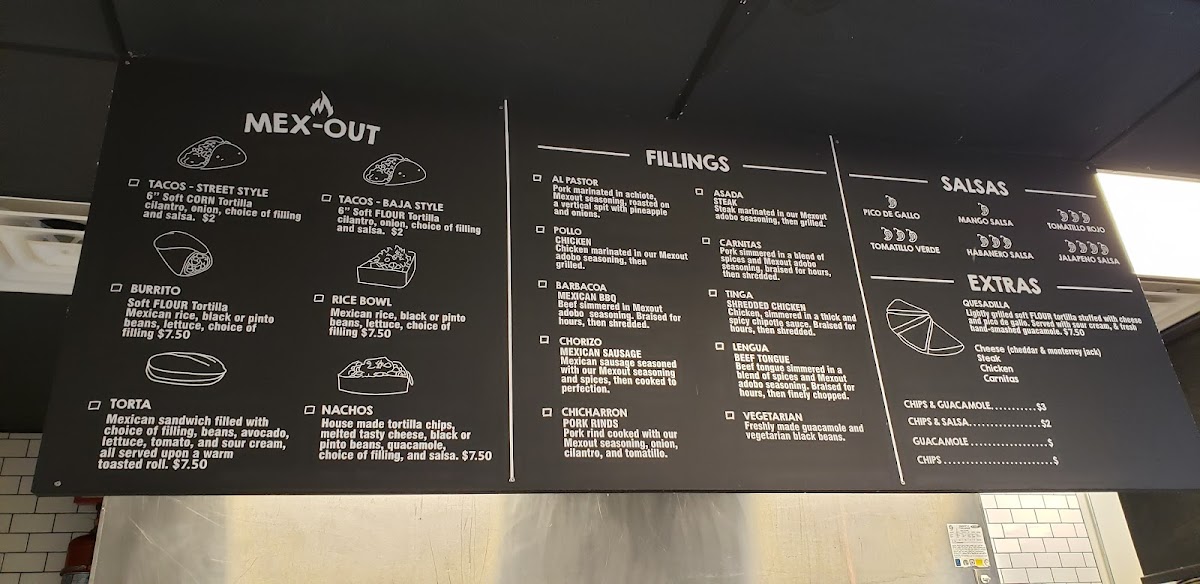 MEX-OUT
TACOS - STREET STYLE
6" Soft CORN Tortilla
cilantro, onion, choice of filling
and salsa. $2
TACOS - BAJA STYLE
6" Soft FLOUR Tortilla
cilantro, onion, choice of filling
and salsa. $2
BURRITO
Soft FLOUR Tortilla
Mexican rice, black or pinto
beans, lettuce, choice of
filling $7.50
RICE BOWL
Mexican rice, black or pinto
beans, lettuce, choice of
filling $7.50
TORTA
Mexican sandwich filled with
choice of filling, beans, avocado,
lettuce, tomato, and sour cream,
all served upon a warm
toasted roll. $7.50
NACHOS
House made tortilla chips,
melted tasty cheese, black or
pinto beans, guacamole,
choice of filling, and salsa. $7.50
FILLINGS
AL PASTOR
Pork marinated in achiote,
Mexout seasoning, roasted on
a vertical spit with pineapple
and onions.
POLLO
CHICKEN
Chicken marinated in our Mexout
adobo seasoning, then
grilled.
BARBACOA
MEXICAN BBQ
Beef simmered in Mexout
adobo seasoning. Braised for
hours, then shredded.
CHORIZO
MEXICAN SAUSAGE
Mexican sausage seasoned
with our Mexout seasoning
and spices, then cooked to
perfection.
CHICHARRON
PORK RINDS
Pork rind cooked with our
Mexout seasoning, onion,
cilantro, and tomatillo.
ASADA
STEAK
Steak marinated in our Mexout
adobo seasoning, then grilled.
CARNITAS
Pork simmered in a blend of
spices and Mexout adobo
seasoning, braised for hours,
then shredded.
TINGA
SHREDDED CHICKEN
Chicken, simmered in a thick and
spicy chipotle sauce. Braised for
hours, then shredded.
LENGUA
BEEF TONGUE
Beef tongue simmered in a
blend of spices and Mexout
adobo seasoning. Braised for
hours, then finely chopped.
VEGETARIAN
Freshly made guacamole and
vegetarian black beans.
SALSAS
PICO DE GALLO
MANGO SALSA
TOMATILLO ROJO
TOMATILLO VERDE
HABANERO SALSA
JALAPENO SALSA
EXTRAS
QUESADILLA
Lightly grilled soft FLOUR tortilla stuffed with cheese
and pico de gallo. Served with sour cream, & fresh
hand-smashed guacamole. $7.50
Cheese (cheddar & monterrey jack)
Steak
Chicken
Carnitas
CHIPS & GUACAMOLE...........$3
CHIPS & SALSA................$2
GUACAMOLE..................$
CHIPS........................$